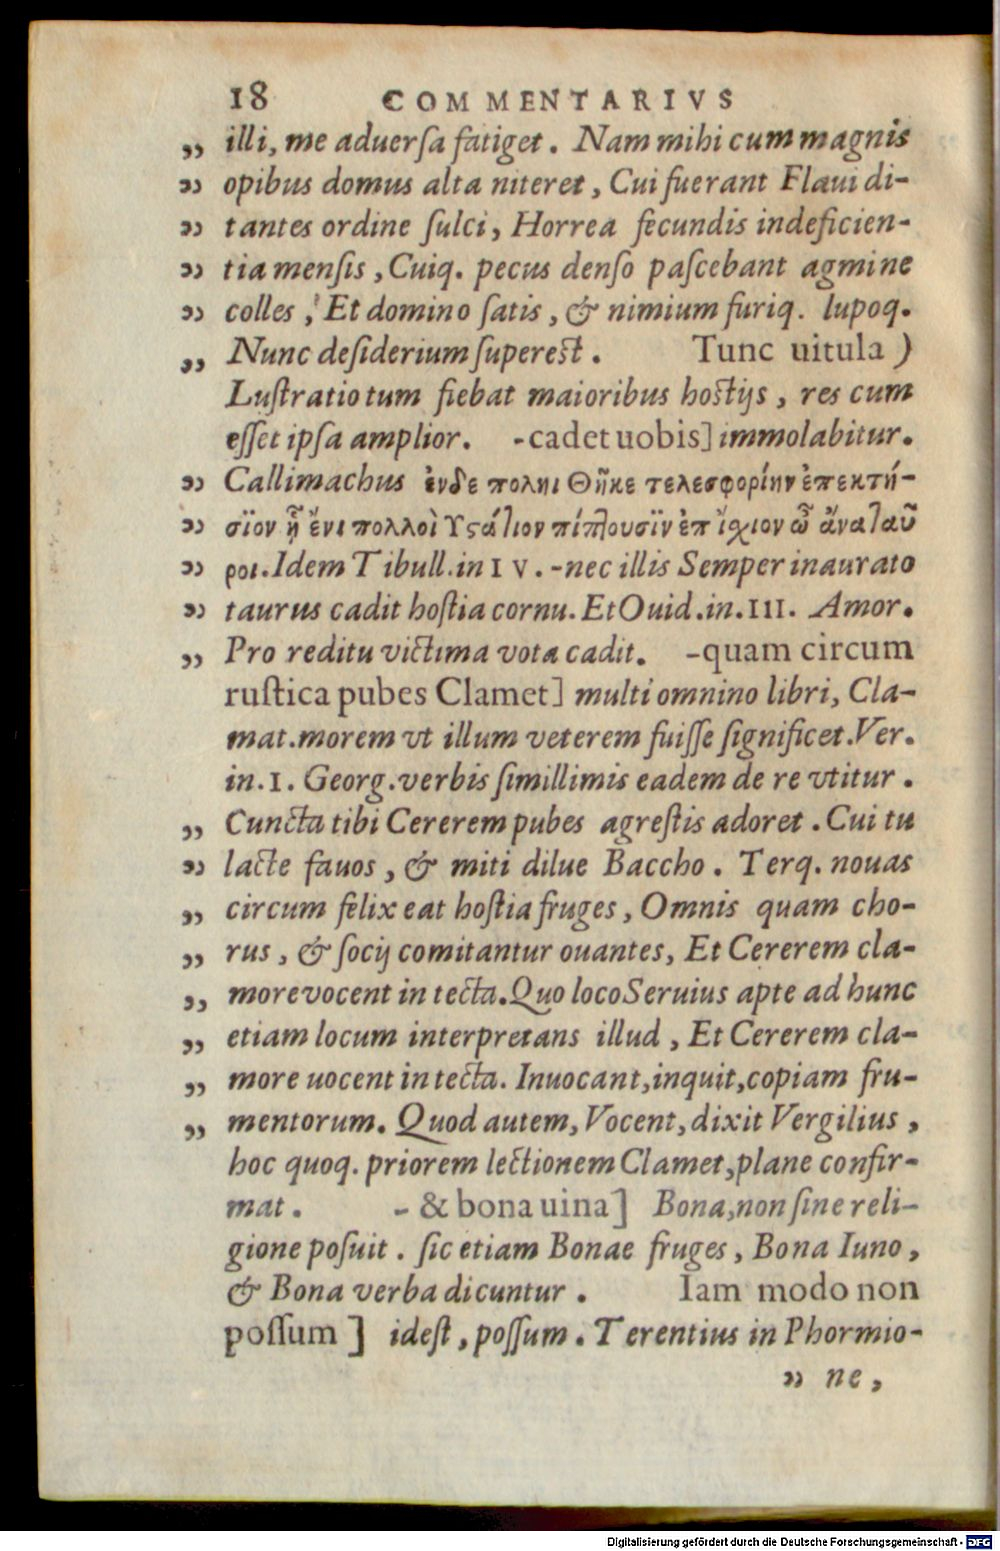 18 COMMENTARIVS
„ illi, me aduerſa fatiget. Nam mihi cum magnis
„ opibus domus alta niteret, Cui fuerant Flaui di-
„ tantes ordine ſulci, Horrea fecundis indeficien-
„ tia menſis, Cuiq. pecus denſo paſcebant agmine
„ colles, Et domino ſatis, & nimium furiq. lupoq.
„ Nunc deſiderium ſupereſt. Tunc uitula )
Luſtratio tum fiebat maioribus hoſtijs, res cum
eſſet ipſa amplior. -cadet uobis] immolabitur.
„ Callimachus ἐνδε πολῃι Θῆκε τελεσφορίην ἐπεκτή-
„ σϊον ᾗ ἔνι πολλοὶ Υςάτιον πίπτουσϊν ἐπ ἴχιον ὦ ἄναταῦ
„ ροι. Idem Tibull. in IV. -nec illis Semper inaurato
„ taurus cadit hoſtia cornu. Et Ouid. in. III. Amor.
„ Pro reditu victima vota cadit. -quam circum
ruſtica pubes Clamet] multi omnino libri, Cla-
mat. morem vt illum veterem fuiſſe ſignificet. Ver.
in. I. Georg. verbis ſimillimis eadem de re vtitur.
„ Cuncta tibi Cererem pubes agreſtis adoret. Cui tu
„ lacte fauos, & miti dilue Baccho. Terq. nouas
„ circum felix eat hoſtia fruges, Omnis quam cho-
„ rus, & ſocij comitantur ouantes, Et Cererem cla-
„ more vocent in tecta. Quo loco Seruius apte ad hunc
„ etiam locum interpretans illud, Et Cererem cla-
„ more uocent in tecta. Inuocant, inquit, copiam fru-
„ mentorum. Quod autem, Vocent, dixit Vergilius,
hoc quoq. priorem lectionem Clamet, plane confir-
mat. - & bona uina] Bona, non ſine reli-
gione poſuit. ſic etiam Bonae fruges, Bona Iuno,
& Bona verba dicuntur. Iam modo non
poſſum ] ideſt, poſſum. Terentius in Phormio-
„ ne,
Digitalisierung gefördert durch die Deutsche Forschungsgemeinschaft - DFG